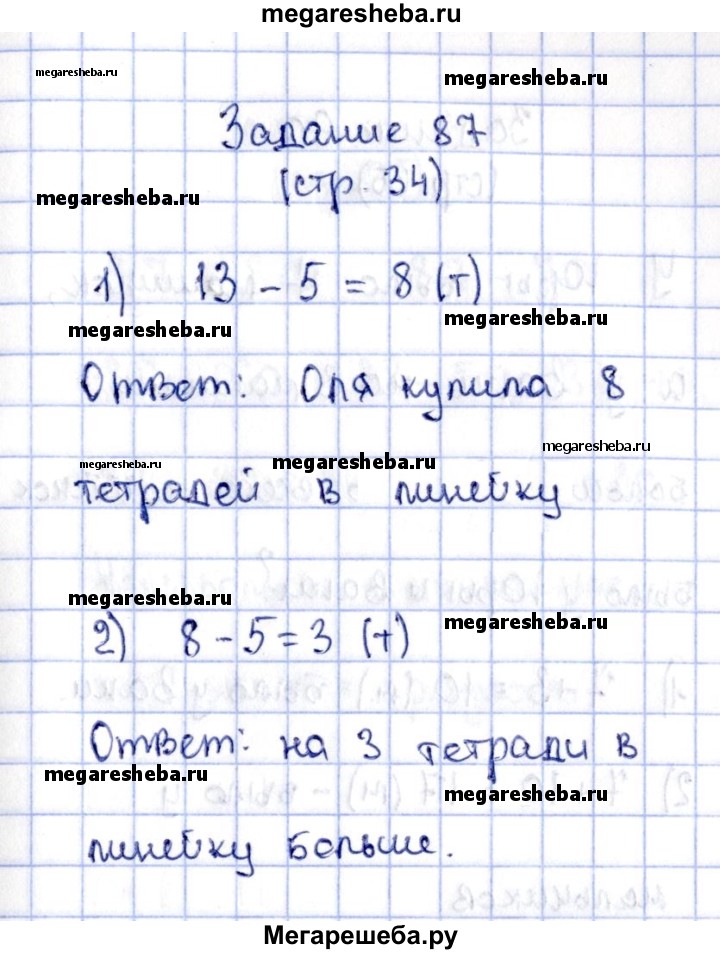 megaresheba.ru
megaresheba.ru
megaresheba.ru
Задание 87
megaresheba.ru
(стр. 34)
1) 13 - 5 = 8 (т)
megaresheba.ru
megaresheba.ru
Ответ: Оля купила 8
megaresheba.ru
megaresheba.ru
megaresheba.ru
тетрадей в линейку
megaresheba.ru
megaresheba.ru
2) 8 - 5 = 3 (т)
Ответ: на 3 тетради в
megaresheba.ru
megaresheba.ru
линейку больше.
Мегарешеба.ру